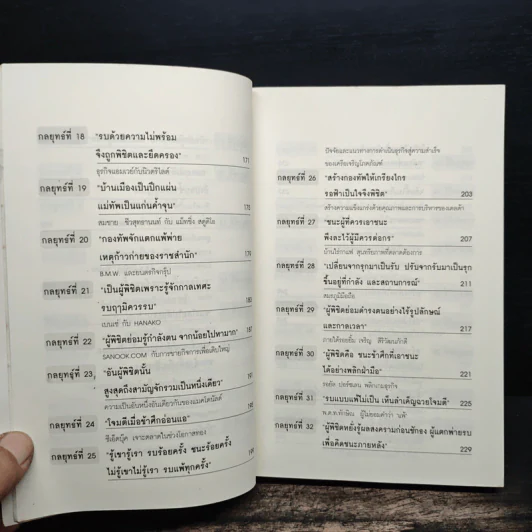 กลยุทธ์ที่ 18 "รบด้วยความไม่พร้อม
จึงถูกพิชิตและยึดครอง" 171
ธุรกิจแอมเวย์กับนิวตริไลต์
กลยุทธ์ที่ 19 "บ้านเมืองเป็นปึกแผ่น
แม่ทัพเป็นแก่นค้ำจุน" 175
สมชาย ชีวสุทธานนท์ กับ แม็ทชิ่ง สตูดิโอ
กลยุทธ์ที่ 20 "กองทัพจักแตกแพ้พ่าย
เหตุก้าวก่ายของราชสำนัก" 179
B.M.W และยนตรกิจกรุ๊ป
กลยุทธ์ที่ 21 "เป็นผู้พิชิตเพราะรู้จักกาลเทศะ
รบฤามิควรรบ" 183
เบนเซ่ กับ HANAKO
กลยุทธ์ที่ 22 "ผู้พิชิตย่อมรู้กำลังตน จากน้อยไปหามาก" 187
SANOOK.COM กับการขายกิจการเพื่อเติบใหญ่
กลยุทธ์ที่ 23 "อันผู้พิชิตนั้น
สูงสุดถึงสามัญจักรวมเป็นหนึ่งเดียว" 191
ความเป็นอันหนึ่งอันเดียวกันของแมคโดนัลด์
กลยุทธ์ที่ 24 "โจมตีเมื่อข้าศึกอ่อนแอ" 195
ซีเอ็ดบุ๊ค เจาะตลาดในช่วงโอกาสทอง
กลยุทธ์ที่ 25 "รู้เขารู้เรา รบร้อยครั้ง ชนะร้อยครั้ง
ไม่รู้เขาไม่รู้เรา รบแพ้ทุกครั้ง" 199
ปัจจัยและแนวทางการดำเนินธุรกิจสู่ความสำเร็จ
ของเครือเจริญโภคภัณฑ์
กลยุทธ์ที่ 26 "สร้างกองทัพให้เกรียงไกร
รอฟ้าเป็นใจจึงพิชิต" 203
สร้างความแข็งแกร่งด้วยคุณภาพและการบริหารของเดลต้า
กลยุทธ์ที่ 27 "ชนะผู้ที่ควรเอาชนะ
พึงละไว้ผู้มีควรต่อกร" 207
บ้านไร่กาแฟ สุนทรียภาพที่ตลาดต้องการ
กลยุทธ์ที่ 28 "เปลี่ยนจากรุกมาเป็นรับ ปรับจากรับมาเป็นรุก
ขึ้นอยู่ที่กำลัง และสถานการณ์" 211
สมบูรณ์มือถือ
กลยุทธ์ที่ 29 "ผู้พิชิตย่อมดำรงตนอย่างไร้รูปลักษณ์
และกาลเวลา" 217
ภายใต้รอยยิ้ม เจริญ สิริวัฒนภักดี
กลยุทธ์ที่ 30 "ผู้พิชิตคือ ชนะข้าศึกที่เอาชนะ
ได้อย่างพลิกฝ่ามือ" 221
กลยุทธ์ที่ 31 "รบแบบแพ้ไม่เป็น เห็นสำเค็ญฉวยโจมตี" 225
พ.ต.ท.ทักษิณ ผู้ไม่ยอมคำว่า แพ้
กลยุทธ์ที่ 32 "ผู้พิชิตหยั่งรู้ผลสงครามก่อนชักธง ผู้แตกพ่ายรบ
เพื่อคิดชนะภายหลัง" 229